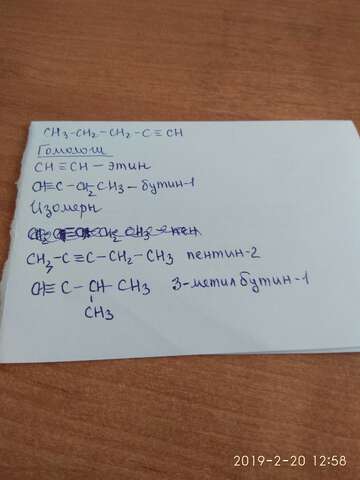 CH₃-CH₂-CH₂-C≡CH
Гомологи
CH≡CH - этин
CH≡C-CH₂CH₃ - бутин-1
Изомеры
CH₃-C≡C-CH₂-CH₃ пентин-2
CH≡C-CH-CH₃ 3-метилбутин-1
CH₃
2019-2-20 12:58